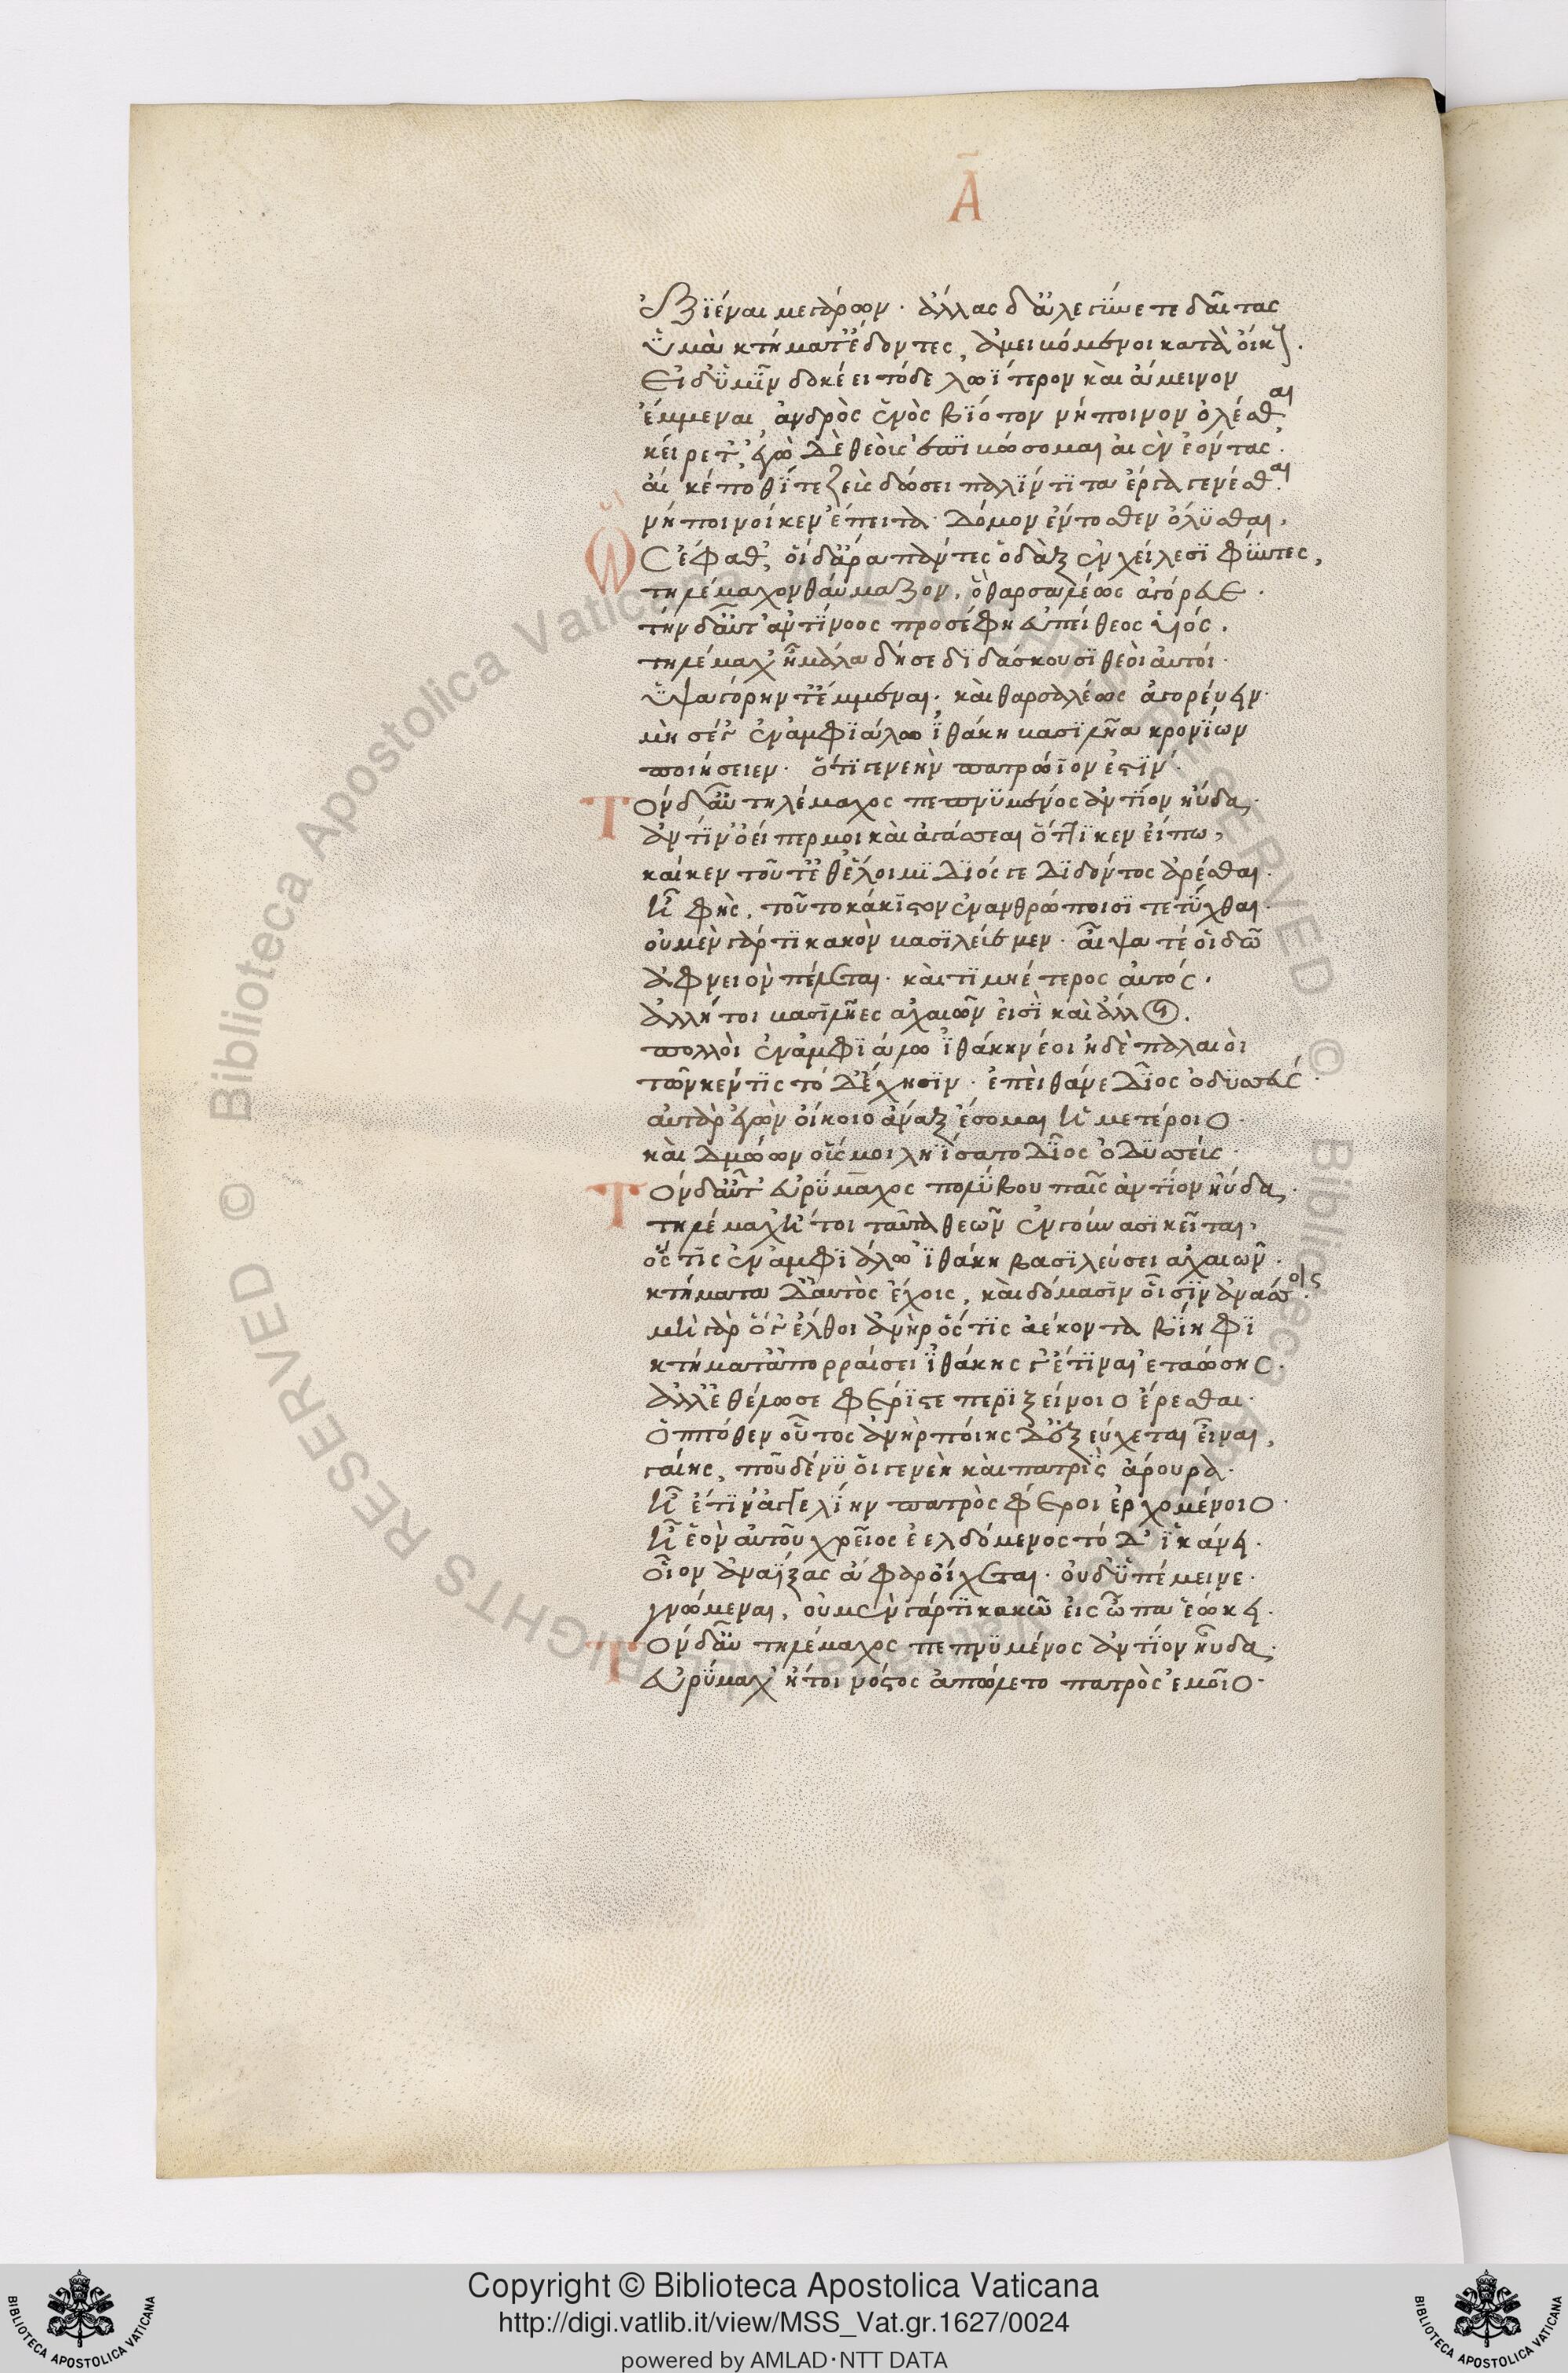 Ᾱ
ἐξϊέναι μεγάρων· ἄλλας δ' ἀλεγύνετε δαῖτας
ὑμὰ κτήματ' ἔδοντες, ἀμειβόμενοι κατὰ οἴκους.
Εἰ δ' ὑμῖν δοκέει τόδε λωΐτερον καὶ ἄμεινον
ἔμμεναι, ἀνδρὸς ἑνὸς βΐοτον νήποινον ὀλέσθαι
κείρετ'· ἐγὼ δὲ θεοὺς ἐπιβώσομαι αἰὲν ἐόντας·
αἴ κέ ποθι ζεὺς δώσει παλίντιτα ἔργα γενέσθαι
νήποινοί κεν ἔπειτα δόμον ἔντοσθεν ὄλυσθαι,
Ὣς ἔφαθ', οἱ δ' ἄρα πάντες ὀδὰξ ἐν χείλεσι φύντες,
τηλέμαχον θαύμαζον, ὃ θαρσαλέως ἀγόρευε.
τὴν δ' αὖτ' ἀντίνοος προσέφη εὐπείθεος υἱός.
τηλέμαχ' ἦ μάλα δή σε διδάσκουσι θεοὶ αὐτοί·
ὑψαγόρην τ' ἔμμεναι· καὶ θαρσαλέως ἀγορεύειν·
μὴ σέ γ' ἐν ἀμφιάλω ἰθάκη βασιλῆα κρονίων
ποιήσειεν· ὅ τι γενεὴν πατρώϊόν ἐστιν·
Τὸν δ' αὖ τηλέμαχος πεπνυμένος ἀντίον ηὔδα·
ἀντίν' ὁ εἴπερ μοι καὶ ἀγάσσεαι ὅττι κεν εἴπω,
καί κεν τοῦτ' ἐθέλοιμι διός γε διδόντος ἀρέσθαι·
ἦ φὴς, τοῦτο κάκιστον ἐν ἀνθρώποισι τετύχθαι·
οὐ μὲν γάρ τι κακὸν βασιλευέμεν· αἶψα τέ οἱ δῶ
ἀφνειὸν πέλεται· καὶ τιμηέτερος αὐτός.
ἀλλ' ἤτοι βασιλῆες ἀχαιῶν εἰσὶ καὶ ἄλλοι.
πολλοὶ ἐν ἀμφιάλω ἰθάκη νέοι ἠδὲ παλαιοὶ
τῶν κέν τις τόδ' ἔχησιν· ἐπεὶ θάνε δῖος ὀδυσσεύς·
αὐτὰρ ἐγὼν οἴκοιο ἄναξ ἔσομαι ἡμετέροιο·
καὶ δμώων οὕς μοι ληΐσατο δῖος ὀδυσσεύς·
Τὸν δ' αὖτ' εὐρύμαχος πολύβου παῖς ἀντίον ηὔδα·
τηλέμαχ' ἤτοι ταῦτα θεῶν ἐν γούνασι κεῖται,
ὅς τις ἐν ἀμφιάλω ἰθάκη βασιλεύσει ἀχαιῶν·
κτήματα δ' αὐτὸς ἔχοις, καὶ δόμασιν οἷσιν ἀνάσσοις·
μὴ γὰρ ὅ γ' ἔλθοι ἀνὴρ ὅς τις ἀέκοντα βίηφι
κτήματ' ἀπορραίσει ἰθάκης γ' ἔτι ναιεταώσης·
ἀλλ' ἐθέλω σε φέριστε περὶ ξείνοιο ἔρεσθαι·
ὁππόθεν οὗτος ἀνὴρ ποίης δ' ἐξ εὔχεται εἶναι,
γαίης, ποῦ δέ νύ οἱ γενεὴ καὶ πατρὶς ἄρουρα·
ἦέ τιν' ἀγγελίην πατρὸς φέρει ἐρχομένοιο·
ἦ ἑὸν αὐτοῦ χρεῖος ἐελδόμενος τόδ' ἱκάνει·
οἷον ἀναΐξας ἄφαρ οἴχεται· οὐδ' ὑπέμεινε·
γνώμεναι, οὐ μὲν γάρ τι κακῶ εἰς ὦπα ἐώκει·
Τὸν δ' αὖ τηλέμαχος πεπνυμένος ἀντίον ηὔδα·
εὐρύμαχ' ἤτοι νόστος ἀπώλετο πατρὸς ἐμοῖο·
Copyright © Biblioteca Apostolica Vaticana
http://digi.vatlib.it/view/MSS_Vat.gr.1627/0024
powered by AMLAD·NTT DATA